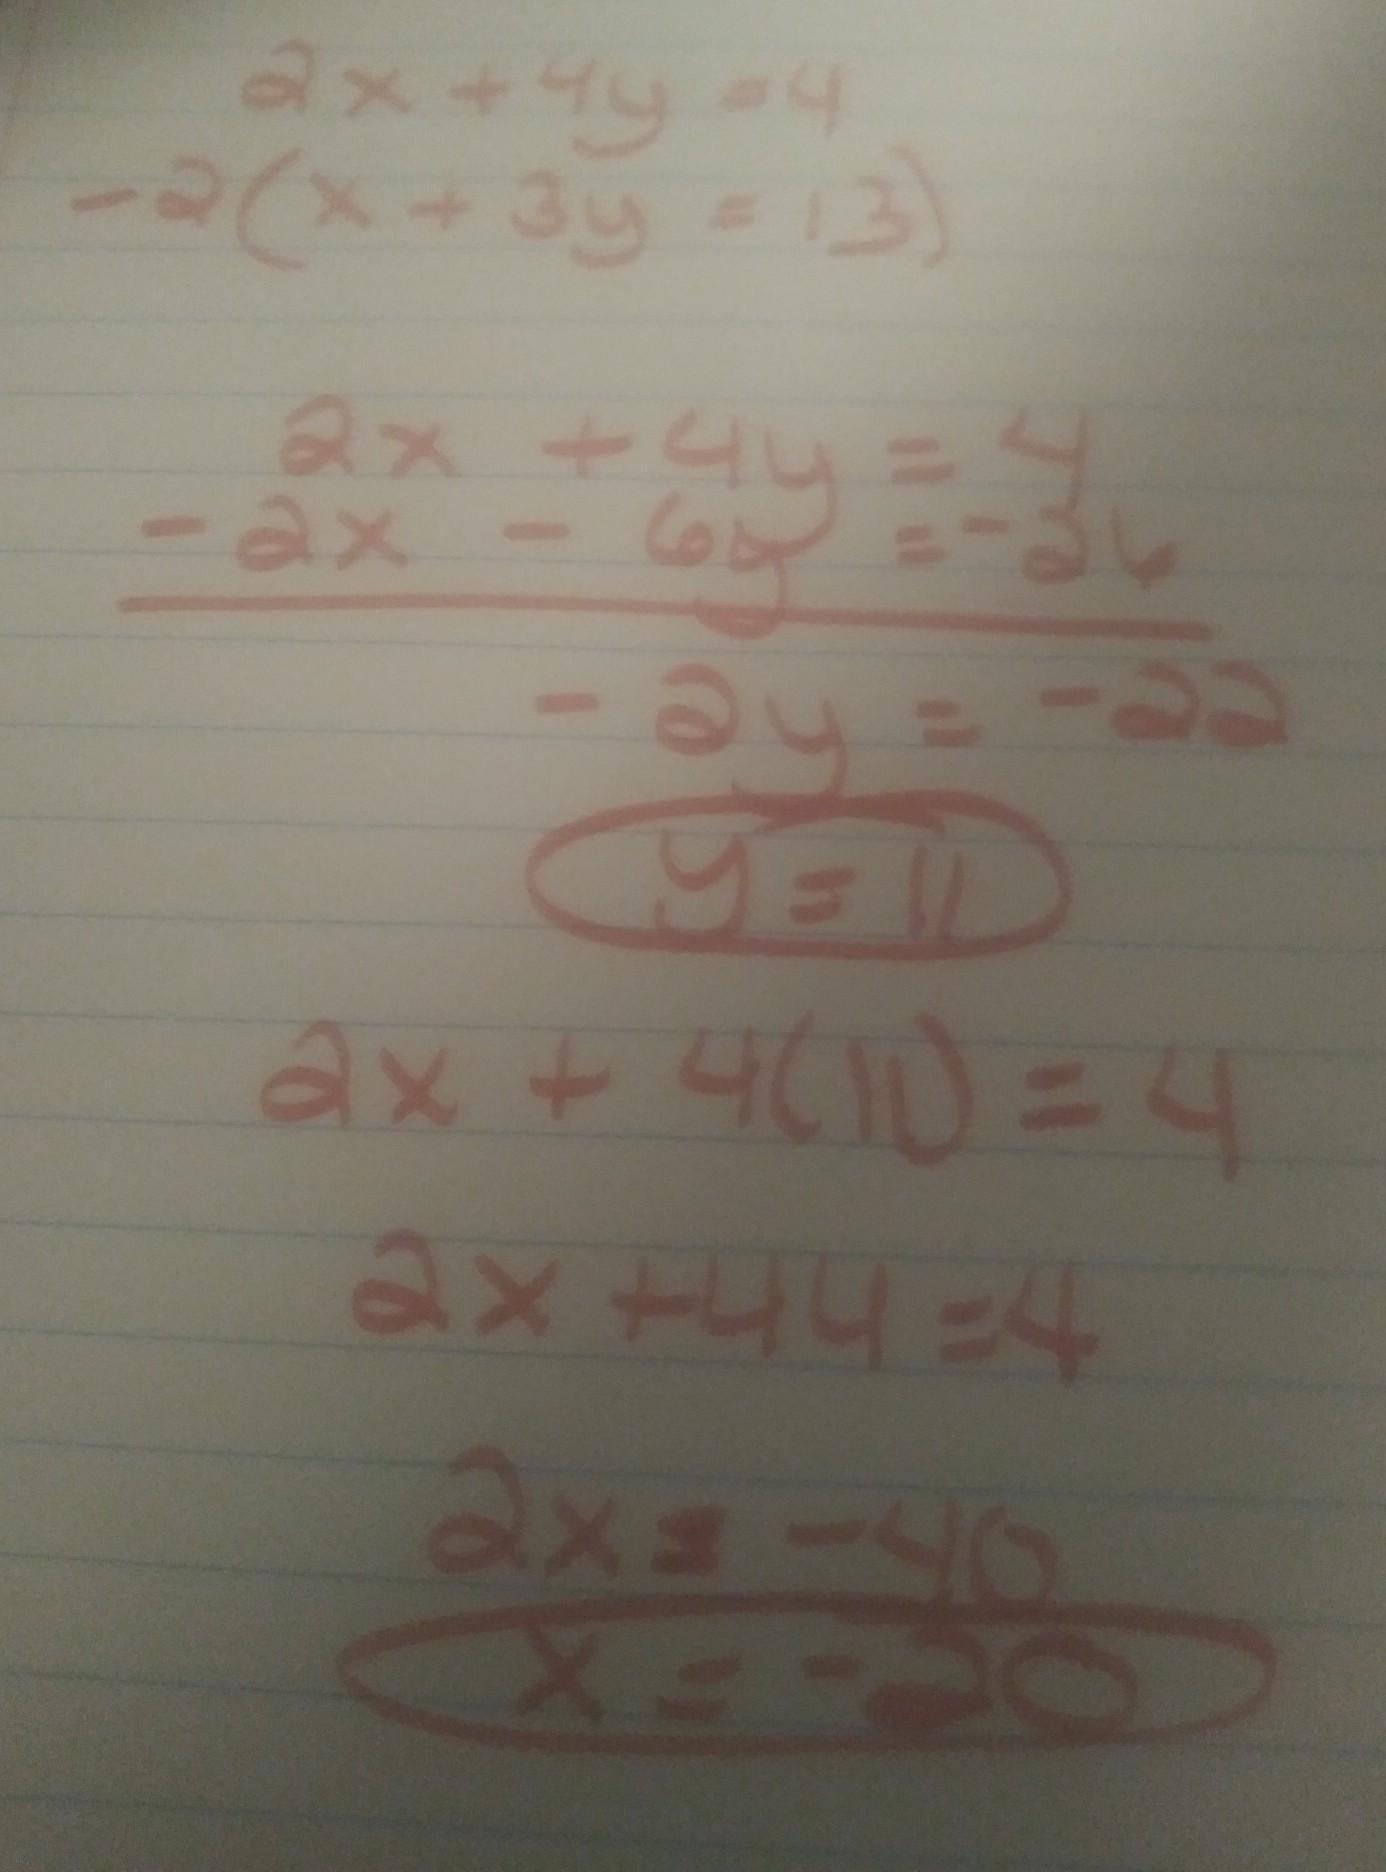 2x + 4y = 4
-2(x + 3y = 13)
2x + 4y = 4
-2x - 6y = -26
-2y = -22
y = 11
2x + 4(11) = 4
2x + 44 = 4
2x = -40
x = -20